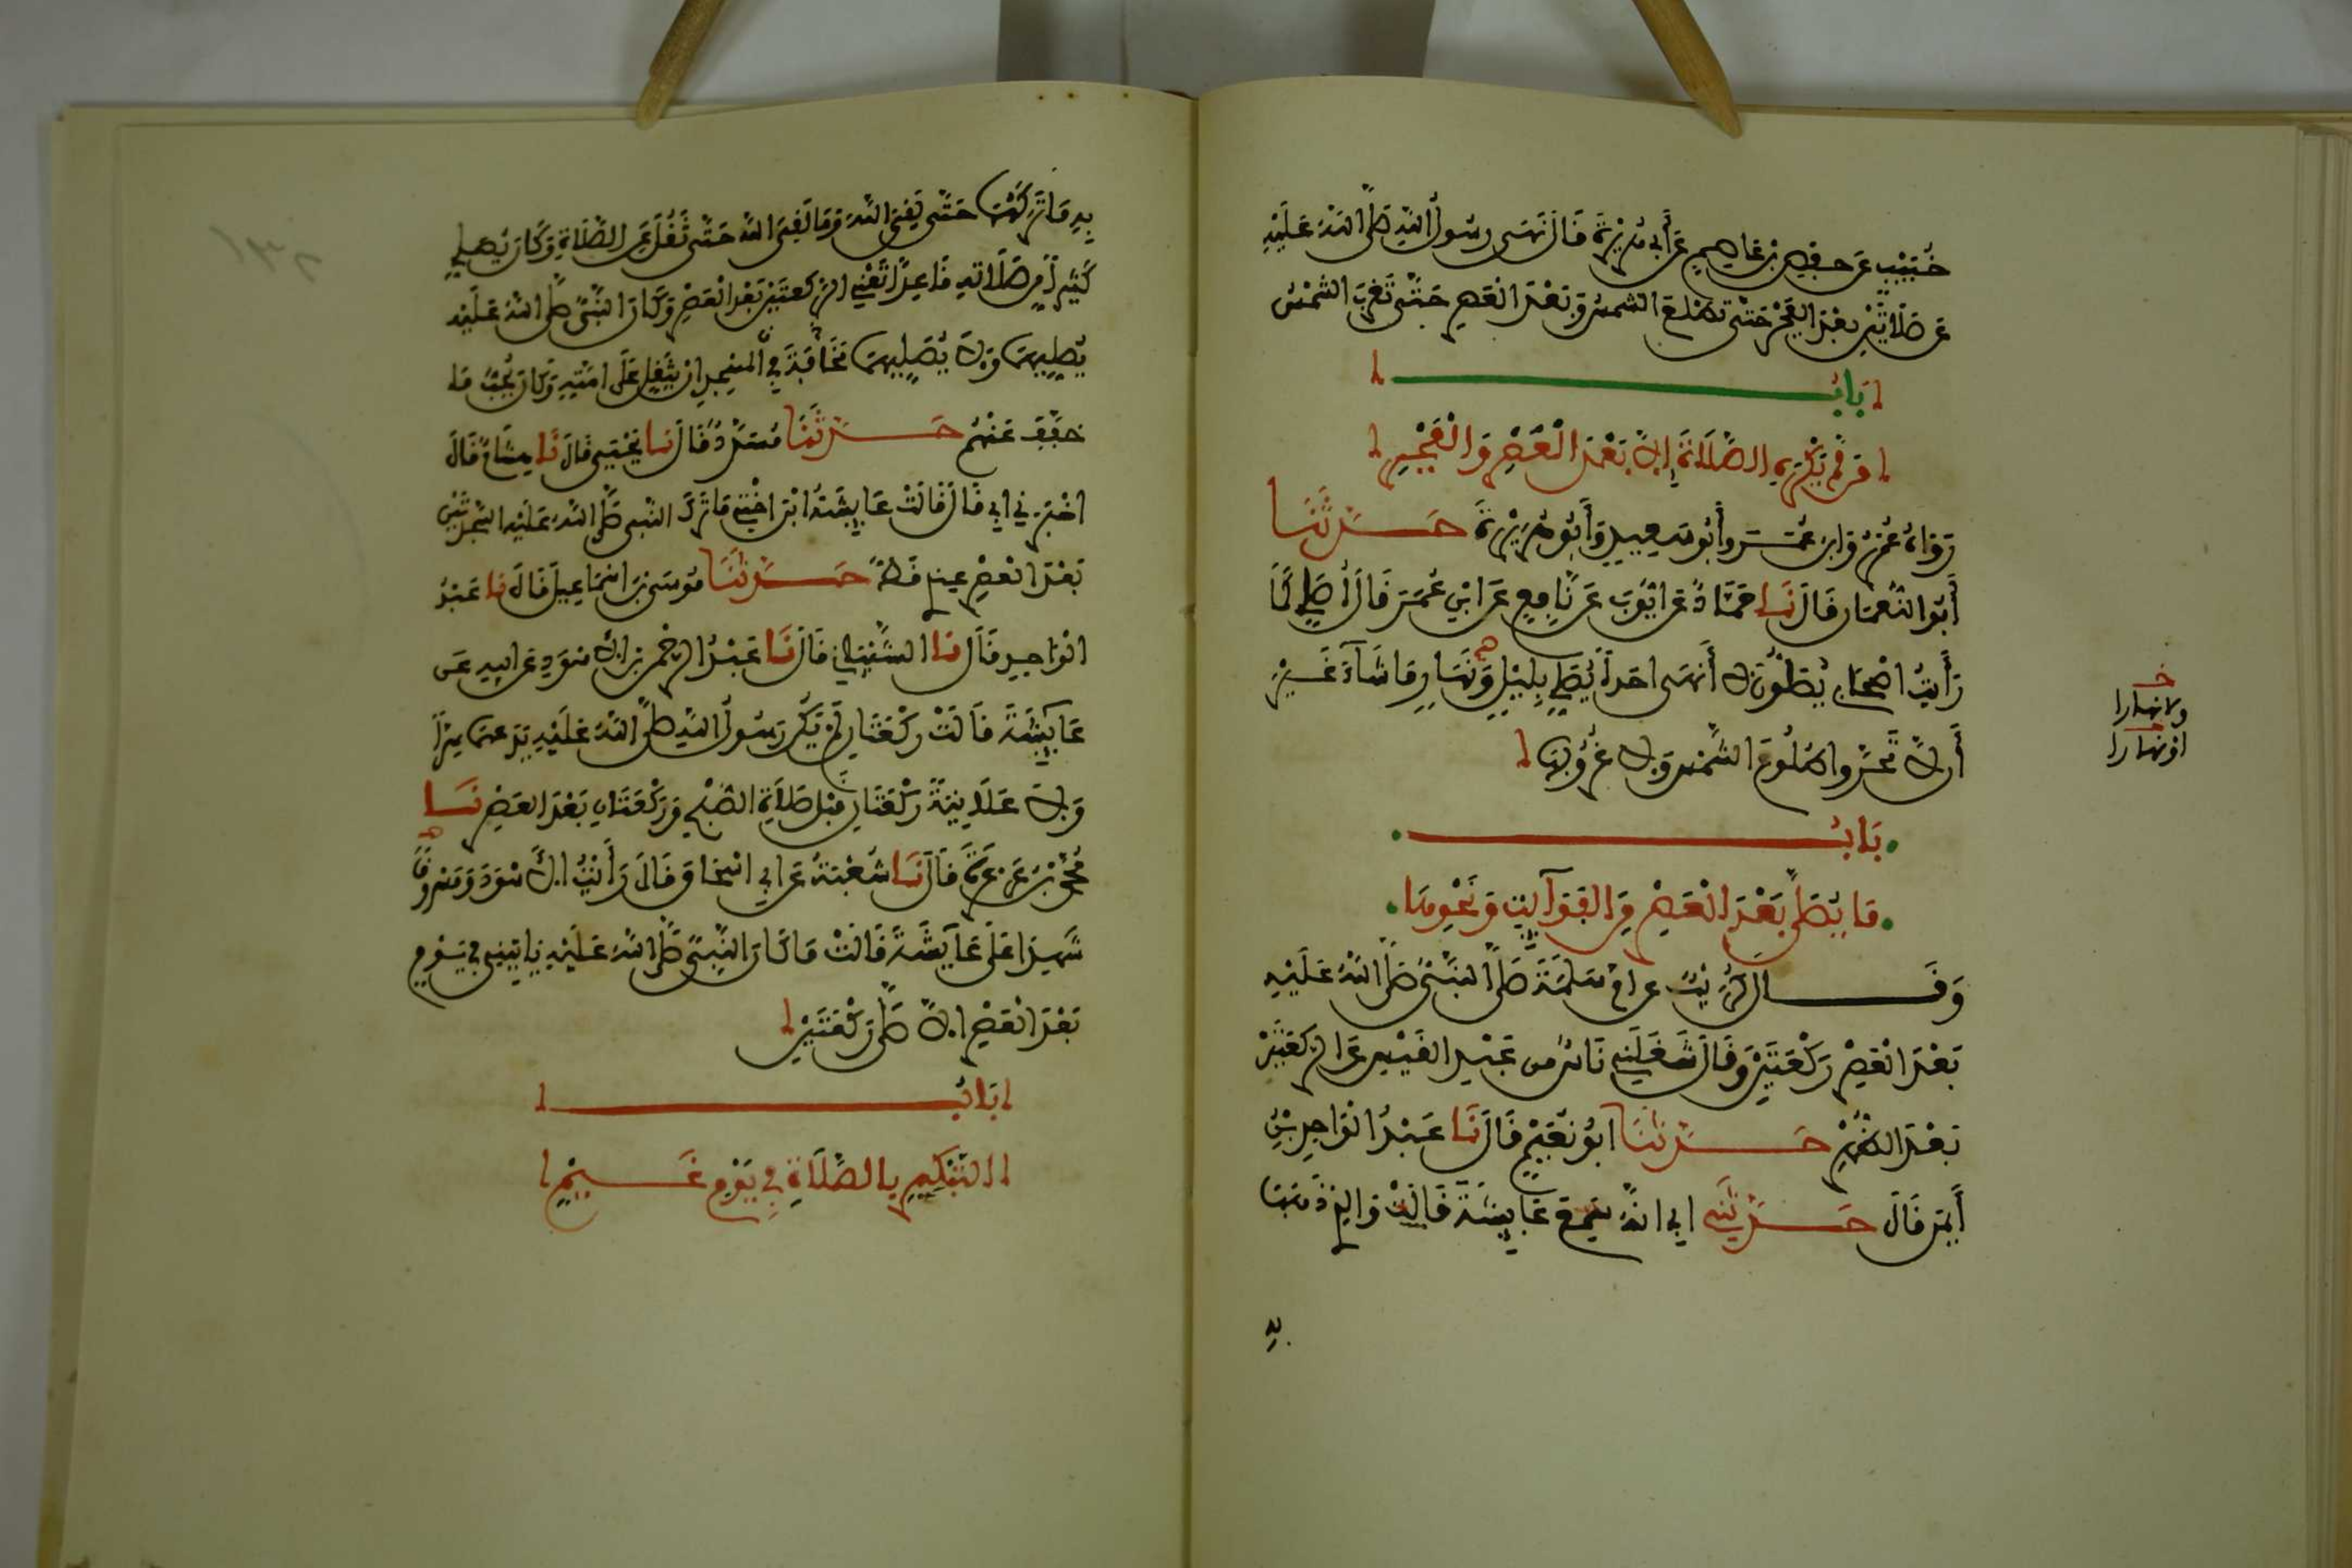 خُبَيْبٍ عَن حفص بن عاصم عَن أبي هُرَيْرَةَ قَالَ نَهَى رسُولُ اللهِ صَلَّى اللهُ عَلَيْهِ
عَن صَلَاتَيْنِ بعْدَ الفَجْرِ حَتَّى تطلع الشمسُ وَبَعْدَ العَصر حَتَّى تَغرُبَ الشمْسُ
بَابُ
مَن لَّمْ يَكْرَهِ الصَّلَاةَ إِلَّا بَعْدَ الْعَصْرِ وَالْفَجْرِ
رَوَاهُ عُمَرُ وَابن عُمَر وأَبُو سَعِيدٍ وَأَبُو هُرَيْرَةَ حَدَّثَنَا
أَبُو النُّعمَان قَالَ نَا حَمَّادٌ عَن ايُّوبَ عَن نَّافِعٍ عَن ابْنِ عُمَرَ قَالَ أُصَلِّي كَمَا
رَأَيتُ اصْحَابِي يُصَلُّونَ لَا أَنْهَى احَداً يُصَلِّي بِلَيْلٍ وَنَهَارٍ مَا شَاءَ غَيْرَ
أَن لَّا تَحَرَّوا طُلُوعَ الشَّمْسِ وَلَا غُرُوبَهَا
خ
ولا نهارا
خ
او نهارا
بَابُ
مَا يُصَلَّى بَعْدَ الْعَصْرِ مِنَ الفَوَآيِتِ وَنَحْوِهَا
وَقَالَ كُرَيْبٌ عن ام سَلَمَةَ صَلَّى النَّبِيُّ صَلَّى اللهُ عَلَيْهِ
بَعْدَ الْعَصْرِ رَكْعَتَيْنِ وَقَالَ شَغَلَنِي نَاسٌ من عَبْدِ القَيْسِ عَن الرَّكعَتَيْنِ
بَعْدَ الظُّهْرِ حَدَّثَنَا ابُو نُعَيْمٍ قَالَ نَا عَبْدُ الْوَاحِدِ بْنُ
أَيْمَن قَالَ حَدَّثَنِي ابي انهُ سَمِعَ عَايِشَةَ قَالَتْ وَالذِي ذَهَبَ
بِهِ
بِهِ مَا تَرَكَهُمَا حَتَّى لَقِيَ اللهَ وَمَا لَقِيَ اللهَ حَتَّى ثَقُلَ عَنِ الصَّلَاةِ وَكَانَ يُصلي
كَثِيراً مِّن صَلَاتهِ قَاعِداً تَعْنِي الرَّكعتَيْنِ بَعْدَ الْعَصْرِ وَكَانَ النَّبِيُّ صَلَّى اللهُ عَلَيْهِ
يُصَلِّيهِمَا وَلَا يُصَلِّيهِمَا في الْمَسْجِدِ مَخَافَةَ أن يُثَقِّلَ عَلَى امَّتِهِ وَكَانَ يُحِبُّ مَا
خَفَّفَ عَنْهُم حَدَّثَنَا مُسَدَّدٌ قَالَ نَا يَحْيَى قَالَ نَا هِشَامٌ قَالَ
اخْبَرَني ابي قَالَ قَالَتْ عَايِشَةُ ابْنَ اخْتِي مَا تَرَكَ النَّبي صَلَّى اللهُ عَلَيْهِ السَّجْدَتَيْنِ
بَعْدَ الْعَصْرِ عِندِي قَطُّ حَدَّثَنَا مُوسَى بْنُ اسْمَاعِيلَ قَالَ نا عَبْدُ
الْوَاحِدِ قَالَ نا الشَّيْبَانِي قَالَ نَا عَبْدُ الرَّحْمَنِ بْنُ الاسْوَدِ عَن ابيهِ عَن
عَايِشَةَ قَالَتْ رَكْعَتَانِ لَمْ يَكُن رَسُولُ اللهِ صَلَّى اللهُ عَلَيْهِ يَدَعهمَا سِرّاً
وَلَا عَلَانِيَةً رَكْعَتَانِ قَبْلَ صَلَاةِ الصُّبْحِ وَرَكْعَتَانِ بَعْدَ العَصْرِ نَا
مُحَمَّدُ بْنُ عَرْعَرَةَ قَالَ نَا شُعْبَةُ عَن أبي اسْحَاقَ قَالَ رَأَيْتُ الاسْوَدَ وَمَسْرُوقاً
شَهِدَا عَلَى عَايِشَةَ قَالَتْ مَا كَانَ النَّبِيُّ صَلَّى اللهُ عَلَيْهِ يَاتِينِي في يَوْمٍ
بَعْدَ الْعَصْرِ الَّا صَلَّى رَكْعَتَيْنِ
بَابُ
التَّبْكِيرِ بِالصَّلَاةِ فِي يَوْمِ غَيْمٍ
١٣٢